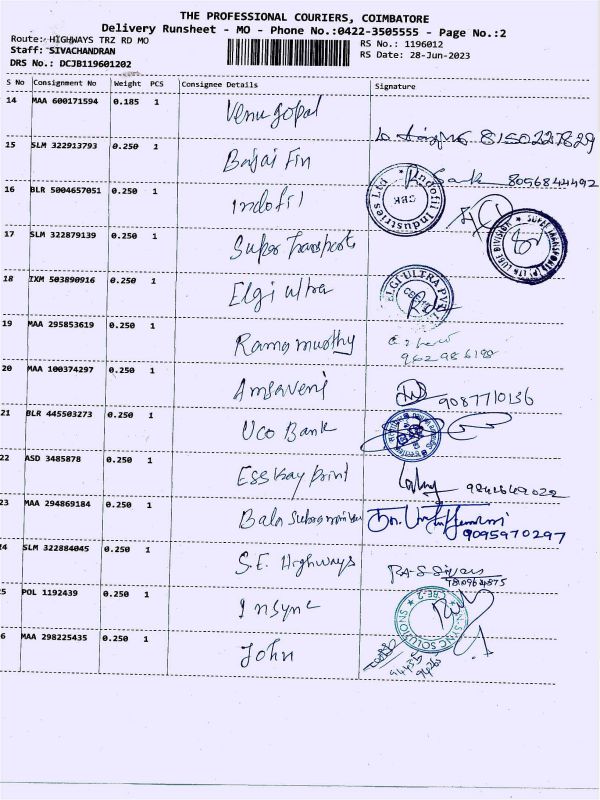 THE PROFESSIONAL COURIERS, COIMBATORE
Delivery Runsheet - MO - Phone No.:0422-3505555 - Page No.:2
Route: HIGHWAYS TRZ RD MO
RS No.: 1196012
Staff: SIVACHANDRAN
RS Date: 28-Jun-2023
DRS No.: DCJB119601202
S No Consignment No Weight PCS Consignee Details Signature
14 MAA 600171594 0.185 1 Venu gopal
8150227829
15 SLM 322913793 0.250 1 Bajai Fin
8056844492
16 BLR 5004657051 0.250 1 Indofil
Indofil Industries Ltd
17 SLM 322879139 0.250 1 Super Transports
LUBE DIVISION
18 IXM 503890916 0.250 1 Elgi ultra
ELGI ULTRA PVT
19 MAA 295853619 0.250 1 Rama murthy
20 MAA 100374297 0.250 1 Amsaveni
9087710136
21 BLR 445503273 0.250 1 Uco Bank
22 ASD 3485878 0.250 1 Ess Kay print
23 MAA 294869184 0.250 1 Bala
9095970297
4 SLM 322884045 0.250 1 S.E. Highways
5 POL 1192439 0.250 1 Insync
IN-SYNC SOLUTIONS
CBE-2
6 MAA 298225435 0.250 1 John